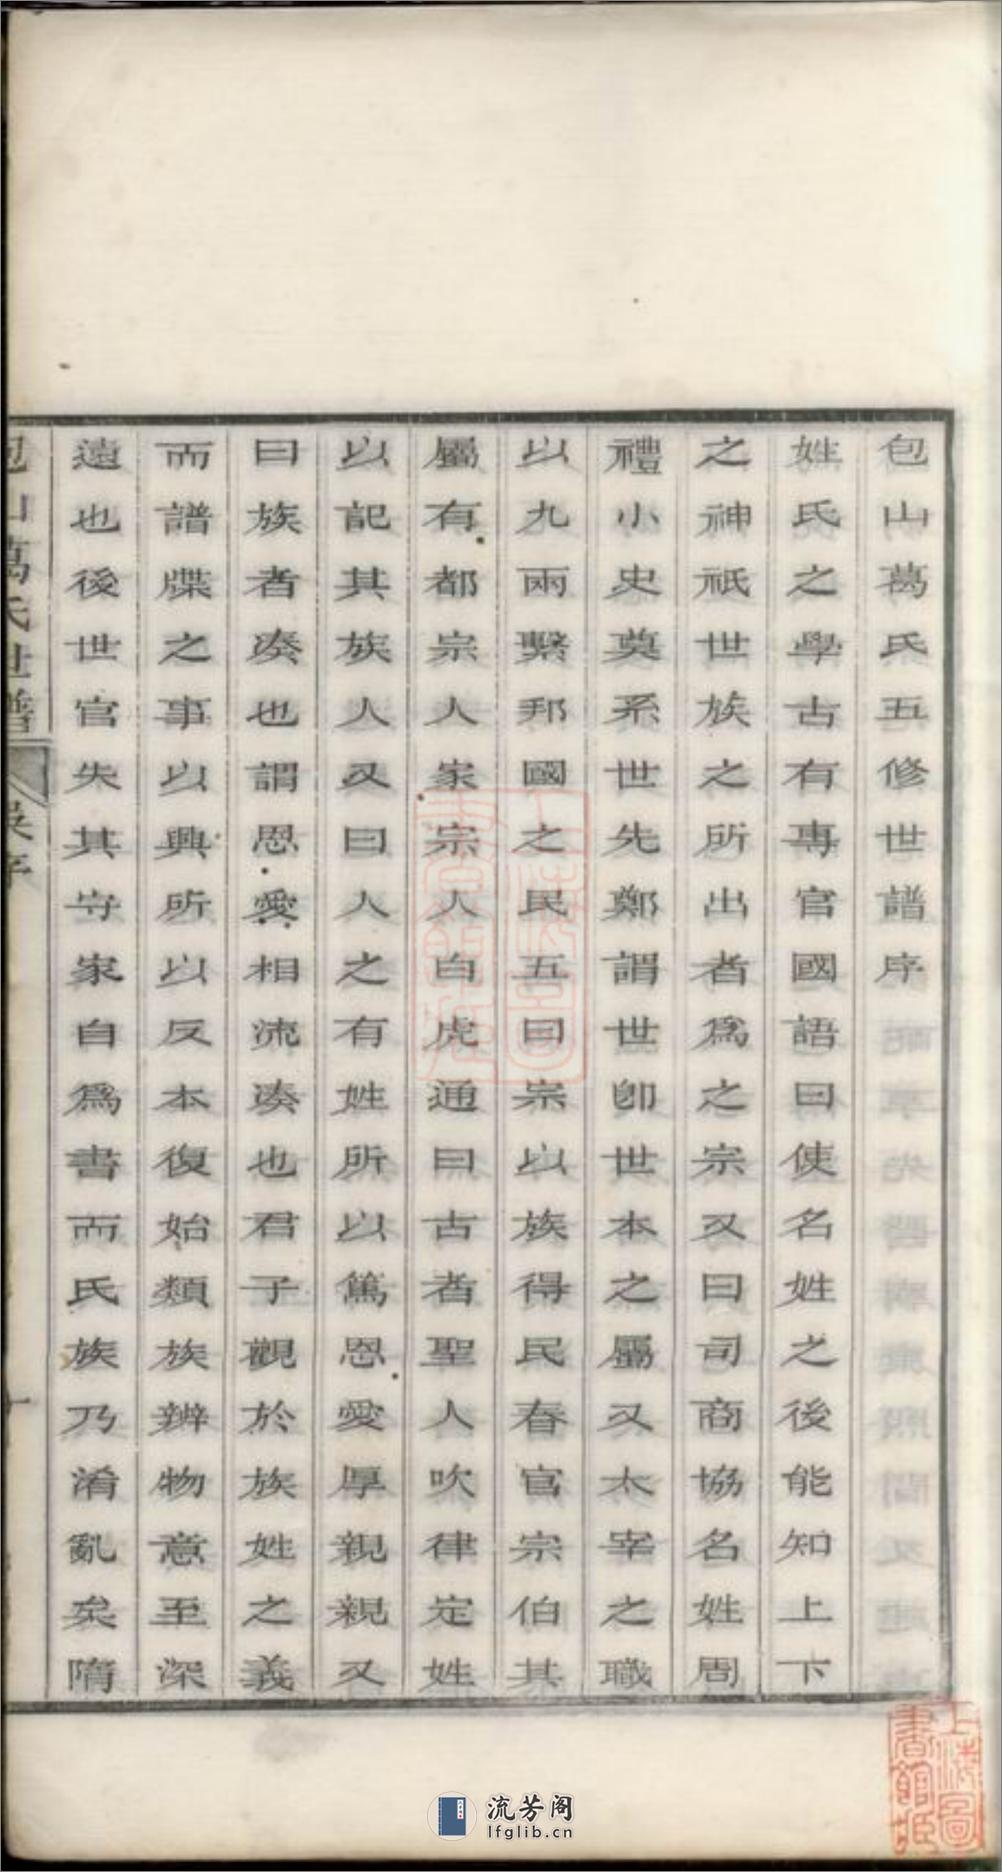 包山葛氏五修世譜序
姓氏之學古有專官國語曰使名姓之後能知上下
之神祇世族之所出者爲之宗又曰司商協名姓周
禮小史奠系世先鄭謂世卽世本之屬又太宰之職
以九兩繫邦國之民五曰宗以族得民春官宗伯其
屬有都宗人家宗人白虎通曰古者聖人吹律定姓
以記其族人又曰人之有姓所以篤恩愛厚親親又
曰族者凑也謂恩愛相流凑也君子觀於族姓之義
而譜牒之事以興所以反本復始類族辨物意至深
遠也後世官失其守家自爲書而氏族乃淆亂矣隋
包山葛氏世譜 吴序
上海圖書館藏
流芳阁
lfglib.cn